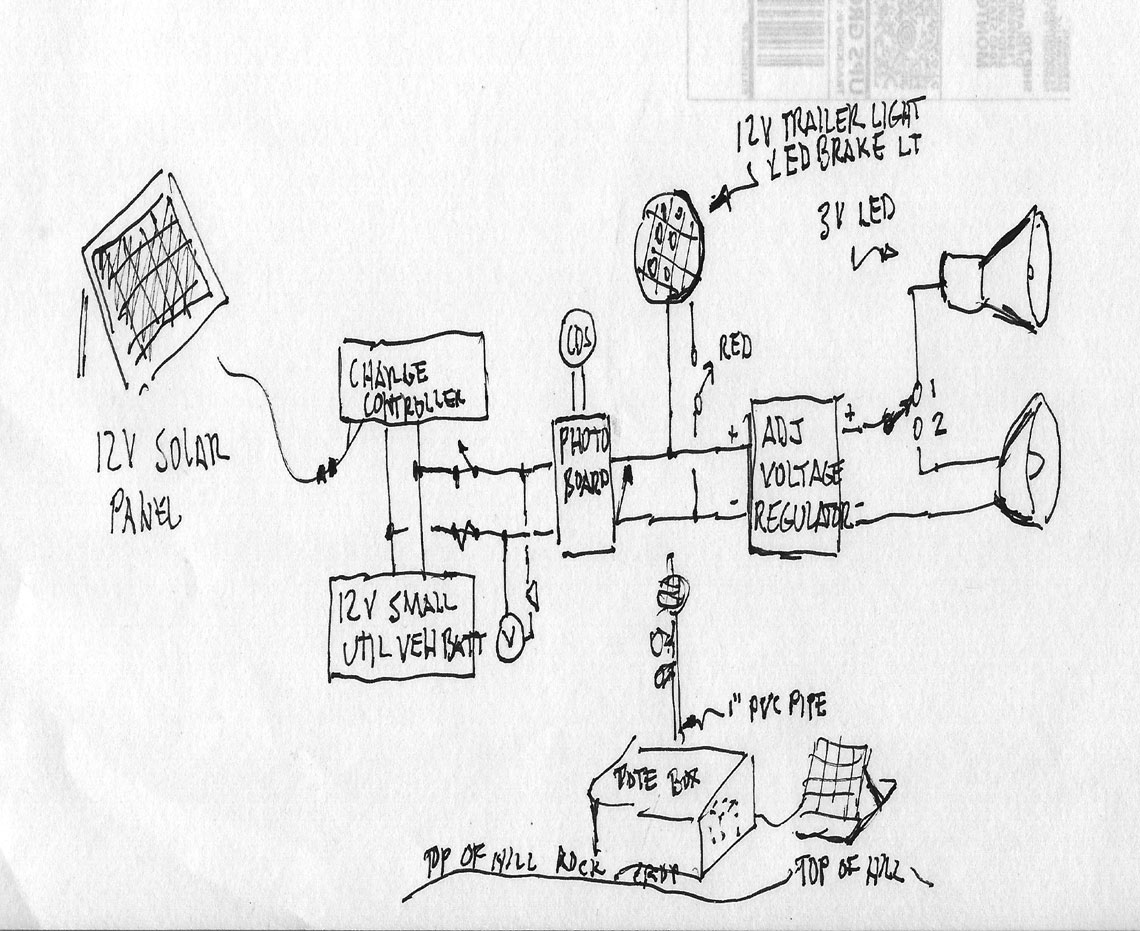 12V TRAILER LIGHT
LED BRAKE LT
3V LED
CDS
RED
1
2
CHARGE
CONTROLLER
PHOTO
BOARD
+
-
ADJ
VOLTAGE
REGULATOR
+
-
12V SOLAR
PANEL
12V SMALL
UTIL VEH BATT
V
1" PVC PIPE
TOTE BOX
TOP OF HILL ROCK
TOP OF HILL